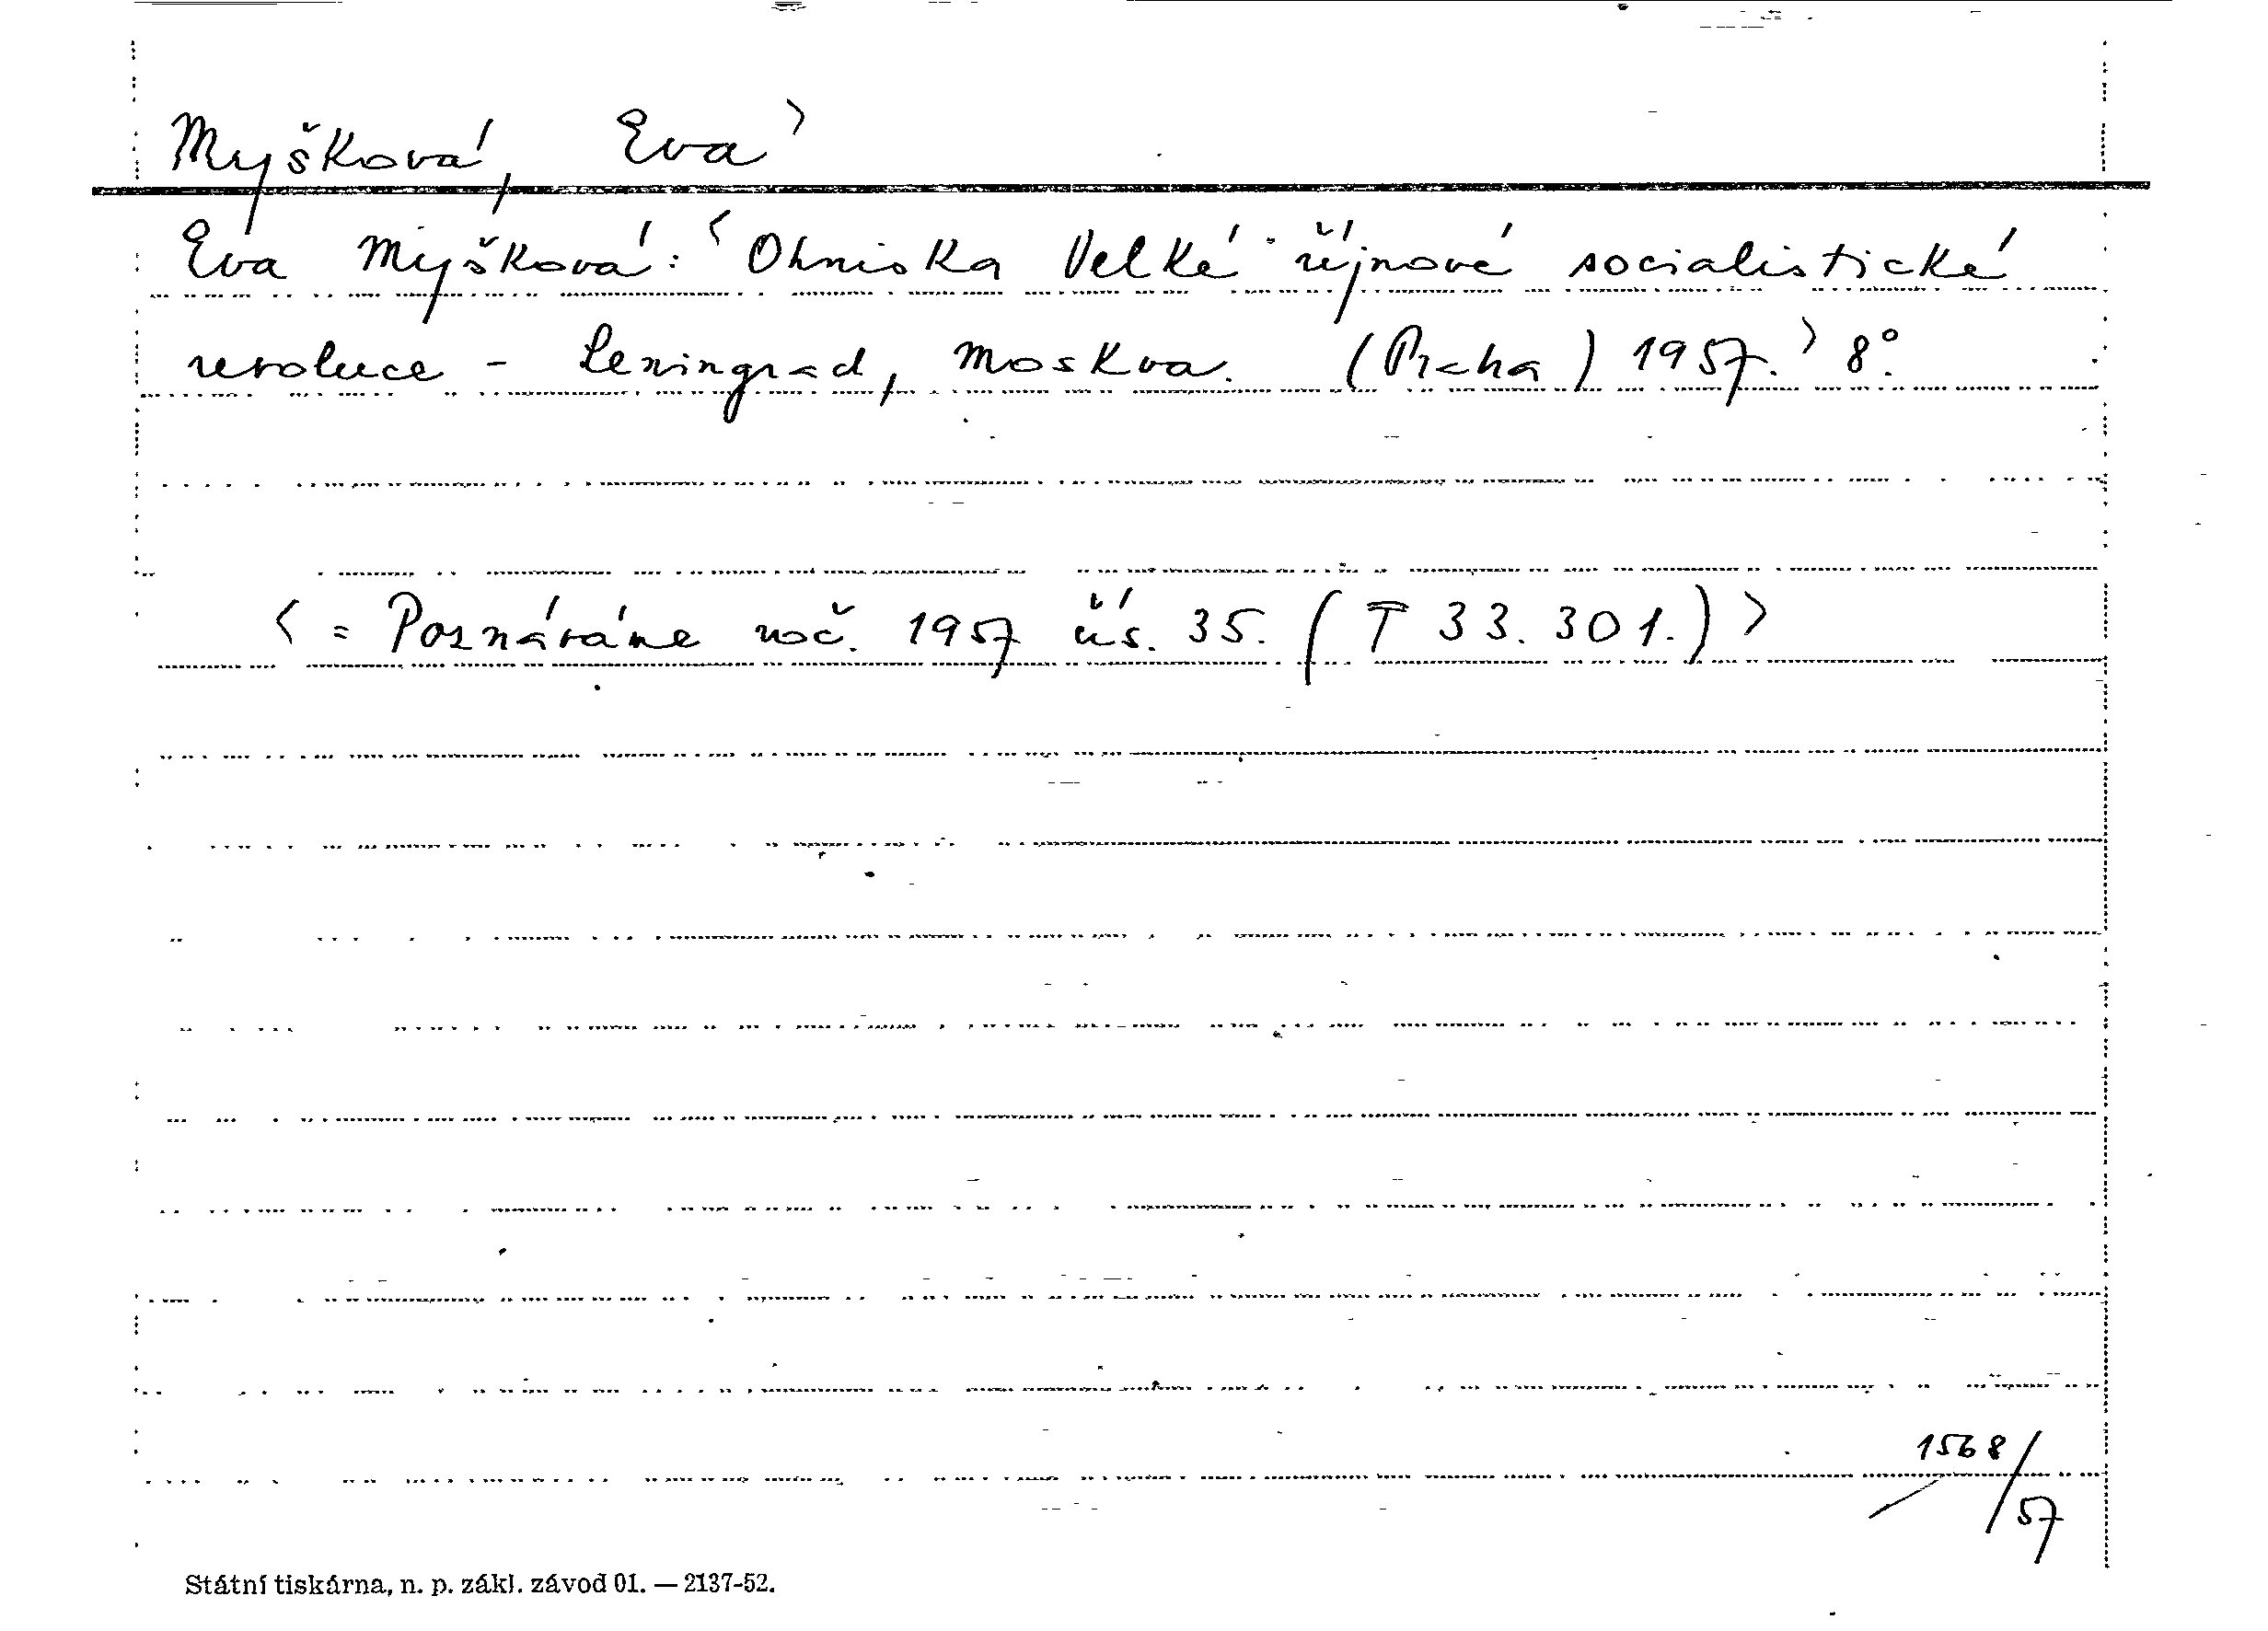 Myšková, Eva〉
Eva Myšková: 〈Ohniska Velké říjnové socialistické
revoluce - Leningrad, Moskva. (Praha) 1957.〉 8°.
〈= Poznáváme roč. 1957 čís. 35. (T 33.301.)〉
1568/57
Státní tiskárna, n. p. zákl. závod 01. — 2137-52.